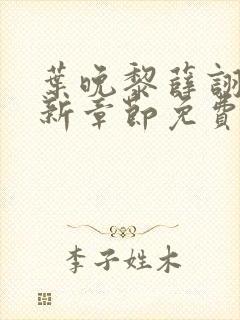 葉晚黎薛詡
新章節免費
李子姓木